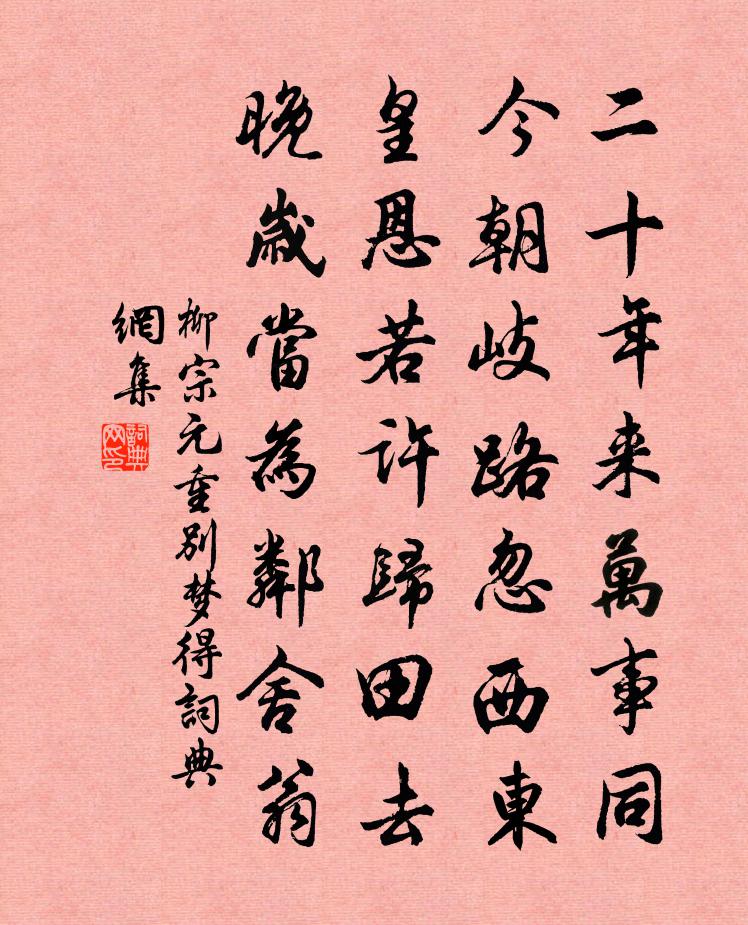 二十年来萬事同
今朝岐路忽西東
皇恩若許歸田去
晚歲當為鄰舍翁
柳宗元重别梦得詞典
網集
詞典
网印